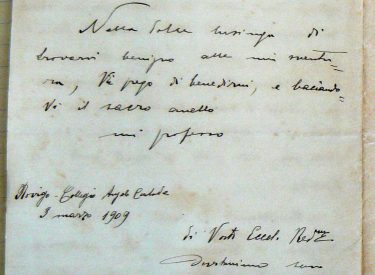 Nella dolce lusinga di
trovarvi benigno alla mia
, Vi prego di benedirmi, e baciando-
Vi il sacro anello
mi professo
Rovigo - Collegio Angelo Custode
3 marzo 1909
di Vostr Eccel. Redma